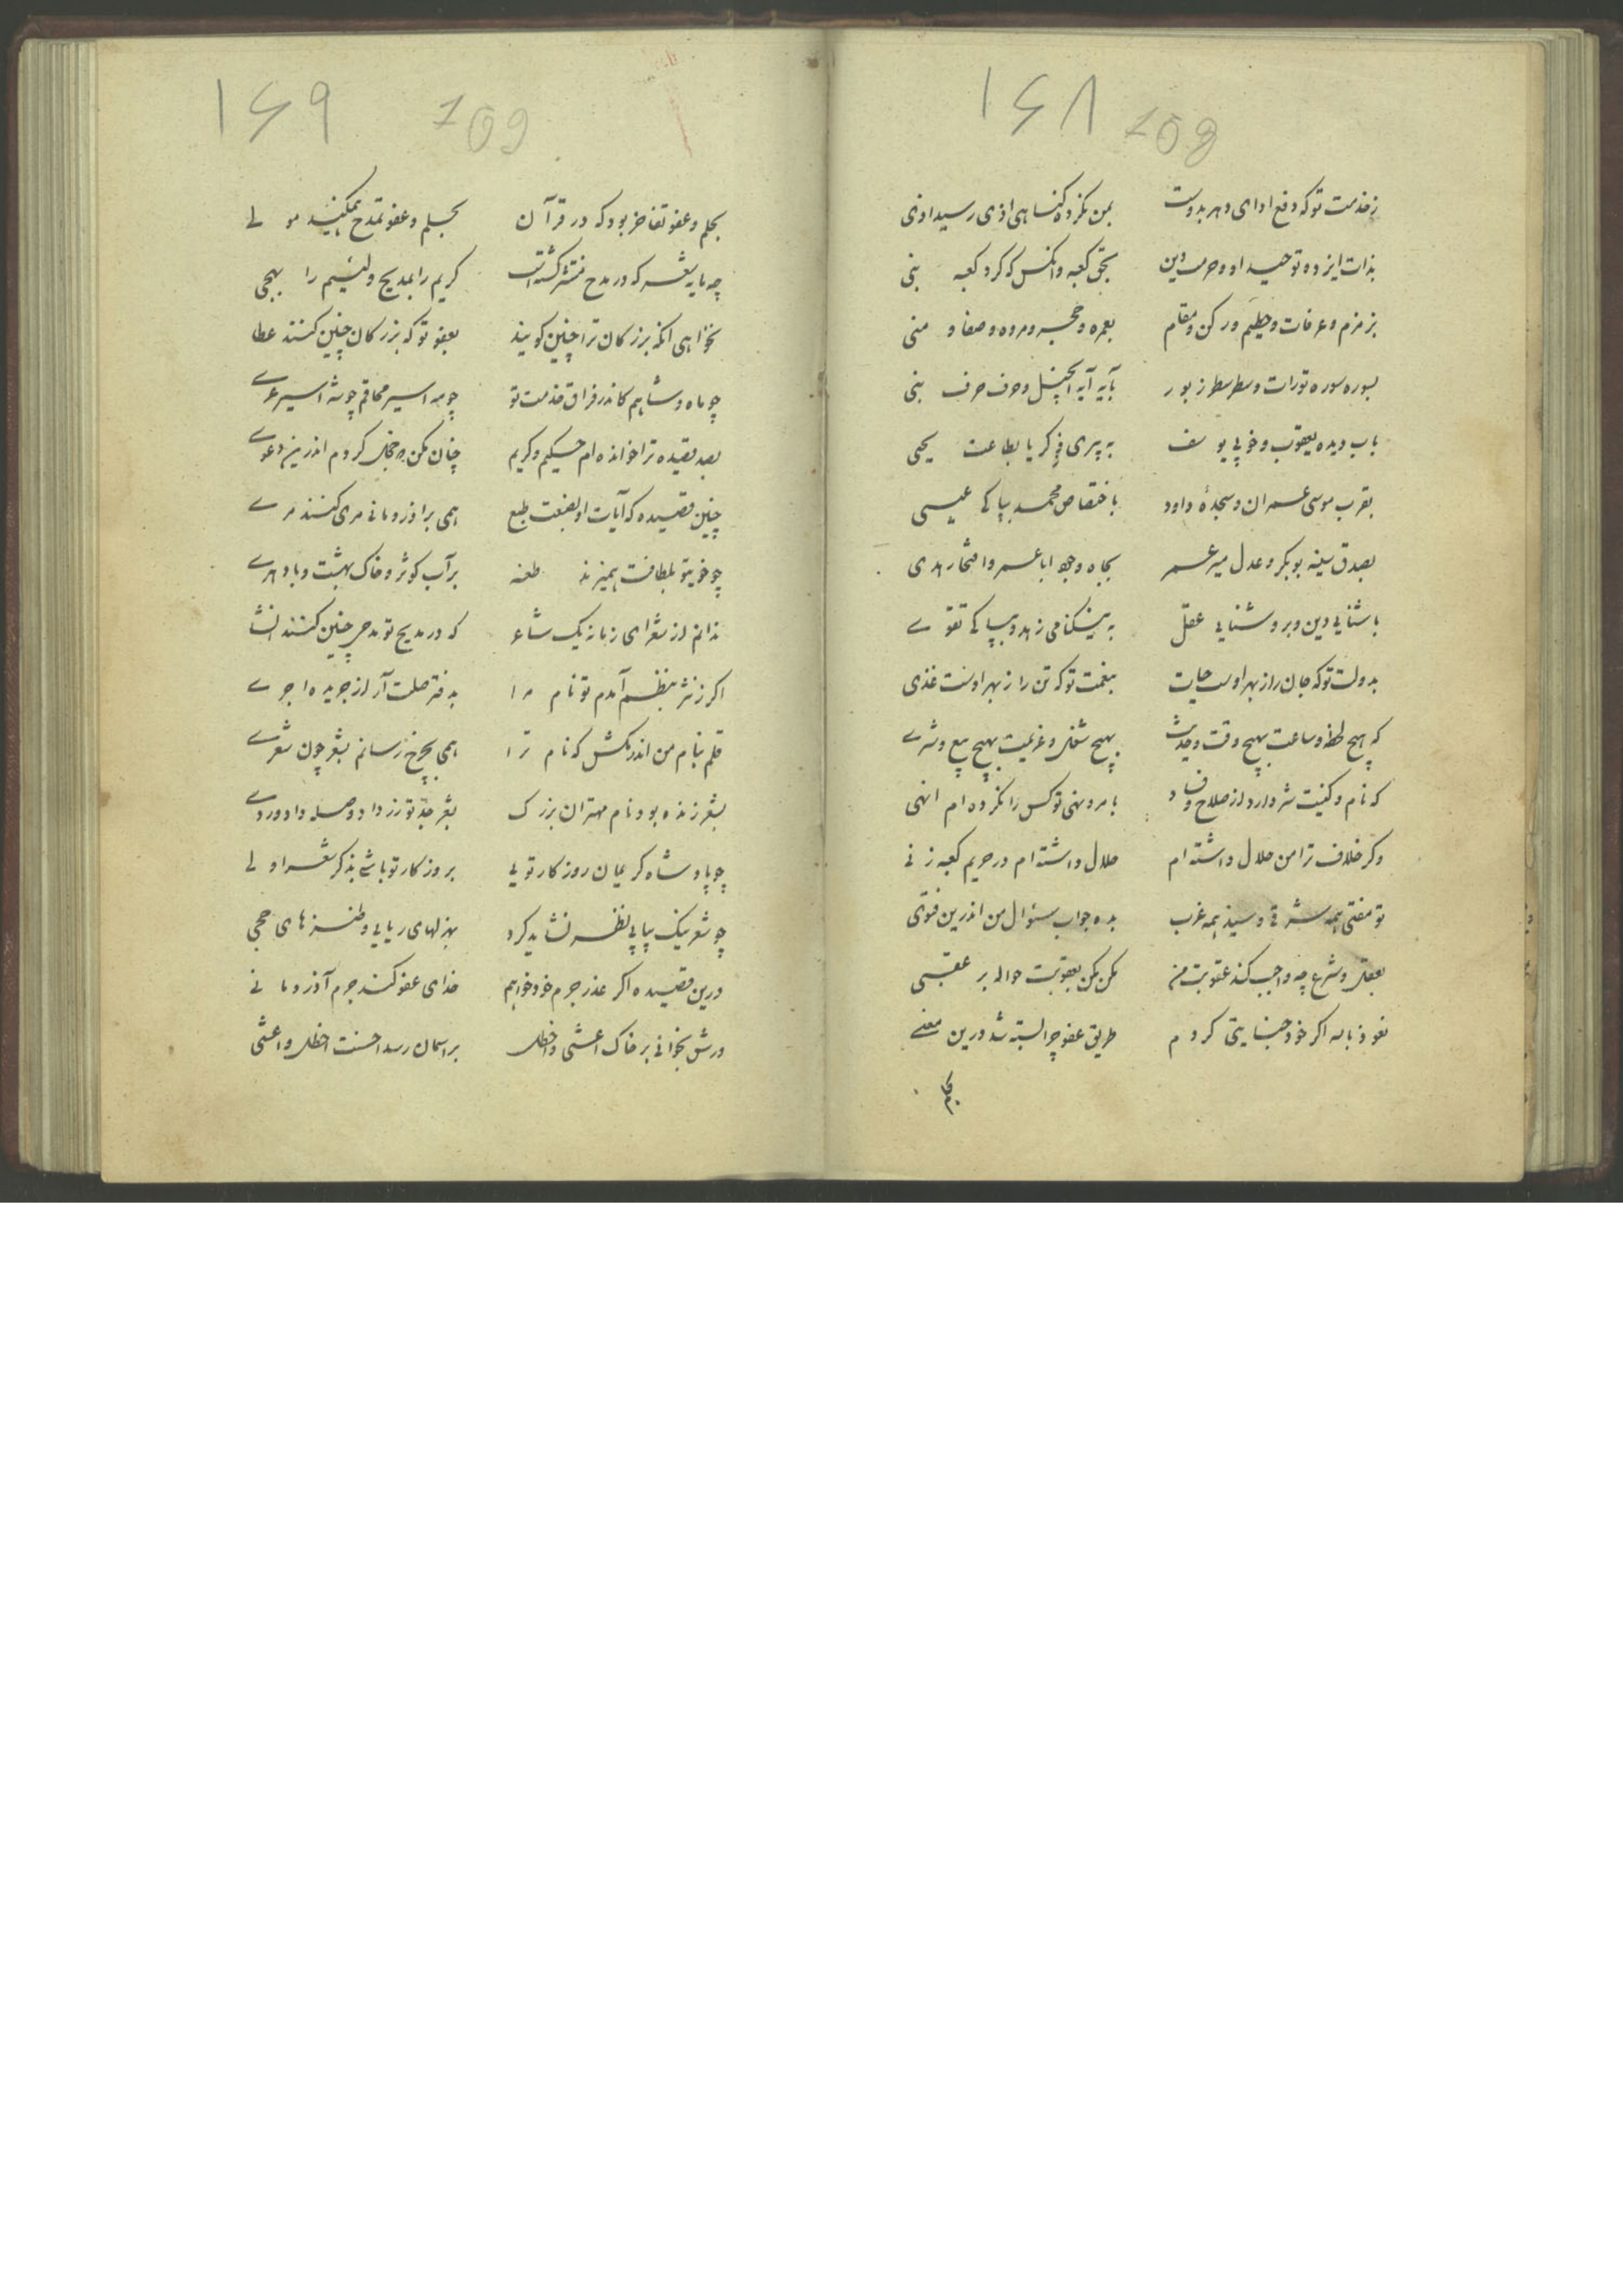 ۱۶۸ 108
ز خدمت تو که دفع اذای دهر بدوست بمن نکرده گناهی اذی رسید اذی
بذات ایزد و توحید او و حرمت دین بحق کعبه و انکس که کرد کعبه بنی
بزمزم و عرفات و حطیم و رکن و مقام بعمره و حجر و مروه و صفا و منی
بسوره سوره تورات و سطر سطر زبور بآیه آیه انجیل و حرف حرف بنی
بآب دیده یعقوب و خوبی یوسف به پیری زکریا بطاعت یحیی
بقرب موسی عمران و سجدهٔ داود باختصاص محمد بپاکی عیسی
بصدق سینه بوبکر و عدل میر عمر بجاه وجه ابا عمر وافتخار هدی
باشنایی دین و بروشنایی عقل به نیکنامی زهد و بپاکی تقوی
بدولت تو که جان را ز بهر اوست حیات بنعمت تو که تن را ز بهر اوست غذی
که هیچ لحظه و ساعت بهیچ وقت و حدیث بهیچ شغل و عزیمت بهیچ بیع و شری
که نام و کنیت شر دارد از صلاح و فساد بامر و نهی تو کس را نکرده ام انهی
وکر خلاف ترا من حلال داشته ام حلال داشته ام در حریم کعبه زنی
تو مفتی همه شرقی و سید همه غرب بده جواب سئوال من اندرین فتوی
بعقل و شرع چه واجب کند عقوبت من مکن مکن بعقوبت حواله بر عقبی
نعوذ بالله اکر خود جنایتی کردم طریق عفو چرا بسته شد درین معنی
بحلم
۱۶۹ 109
بحلم و عفو تفاخر بود که در قرآن بحلم و عفو تمدح همیکند مولی
چه مایه شعر که در مدح منتشر کشتست کریم را بمدیح و لئیم را بهجی
نخواهی انکه بزرکان ترا چنین کویند بعفو تو که بزرکان چنین کنند عطا
چو ماه و شاهم کاندر فراق خدمت تو چو مه اسیر محاقم چو شه اسیر عری
بصد قصیده ترا خوانده ام حکیم و کریم چنان مکن که خجل کردم اندرین دعوی
چنین قصیده که آیات او بصنعت طبع همی بر اذر و مانی مری کنند مری
چو خوی تو بلطافت همیزند طعنه بر آب کوثر و خاک بهشت و باد هری
ندانم از شعرای زمانه یک شاعر که در مدیح تو مدحی چنین کنند انشا
اکر ز نثر بنظم آمدم تو نام مرا بدفتر صلت آر از جریده اجری
قلم بنام من اندر مکش که نام ترا همی بچرخ رسانم بشعر چون شعری
بشعر زنده بود نام مهتران بزرک بشعر جد تو زر داد و صله داد وردی
چو پادشاه کریمان روزکار تویی بروزکار تو باشی بذکر شعر اولی
چو شعر نیک بیابی نظر نشاید کرد بهزلهای ریایی و طنزهای حجی
درین قصیده اکر عذر جرم خود خواهم خدای عفو کند جرم آذر و مانی
ورش بخوانی بر خاک اعشی و اخطل بر اسمان رسد احسنت اخطل و اعشی